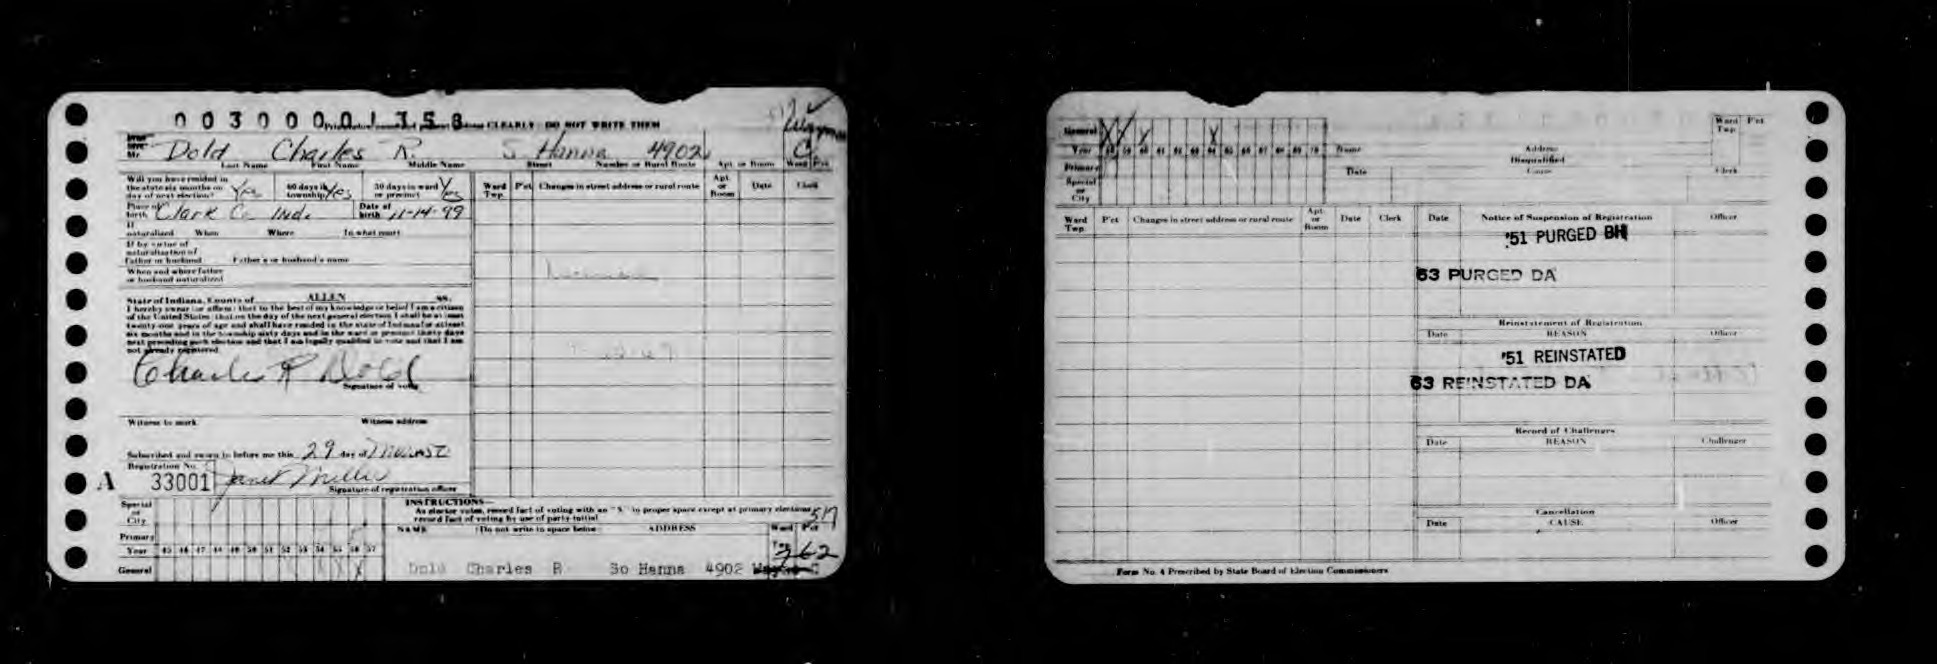 003000001358
CLEARLY - DO NOT WRITE THEM
Wayne
Mr. Dold Charles R. S Hanna 4902 C
Last Name First Name Middle Name Street Number or Rural Route Apt. or Room Ward Pct.
Will you have resided in the state six months on day of next election? Yes 60 days in township Yes 30 days in ward or precinct Yes
Ward Twp. P'ct Changes in street address or rural route Apt. or Room Date Clerk
Place of birth Clark Co Ind. Date of birth 11-14-99
If naturalized When Where In what court
If by virtue of naturalization of father or husband Father's or husband's name
When and where father or husband naturalized
State of Indiana, County of ALLEN ss.
I hereby swear (or affirm) that to the best of my knowledge or belief I am a citizen
of the United States; that on the day of the next general election I shall be at least
twenty-one years of age and shall have resided in the state of Indiana for at least
six months and in the township sixty days and in the ward or precinct thirty days
next preceding such election and that I am legally qualified to vote and that I am
not already registered.
Charles R Dold
Signature of voter
Witness to mark Witness address
Subscribed and sworn to before me this 29 day of
Registration No.
A 33001 Janet Miller
Signature of registration officer
Special or City
Primary
Year 45 46 47 48 49 50 51 52 53 54 55 56 57
General X X X
INSTRUCTIONS—
As elector votes, record fact of voting with an "X" in proper space except at primary elections
record fact of voting by use of party initial
517
NAME (Do not write in space below) ADDRESS Ward Twp. Pct
262
Dold Charles R So Hanna 4902 Wayne C
General X X X X
Year 58 59 60 61 62 63 64 65 66 67 68 69 70
Primary
Special or City
Name Address
Disqualified
Date Cause Clerk
Ward Twp. P'ct
Ward Twp. P'ct Changes in street address or rural route Apt. or Room Date Clerk
Date Notice of Suspension of Registration Officer
'51 PURGED BH
63 PURGED DA
Reinstatement of Registration
Date REASON Officer
'51 REINSTATED
63 REINSTATED DA
Record of Challenges
Date REASON Challenger
Cancellation
Date CAUSE Officer
Form No. 4 Prescribed by State Board of Election Commissioners